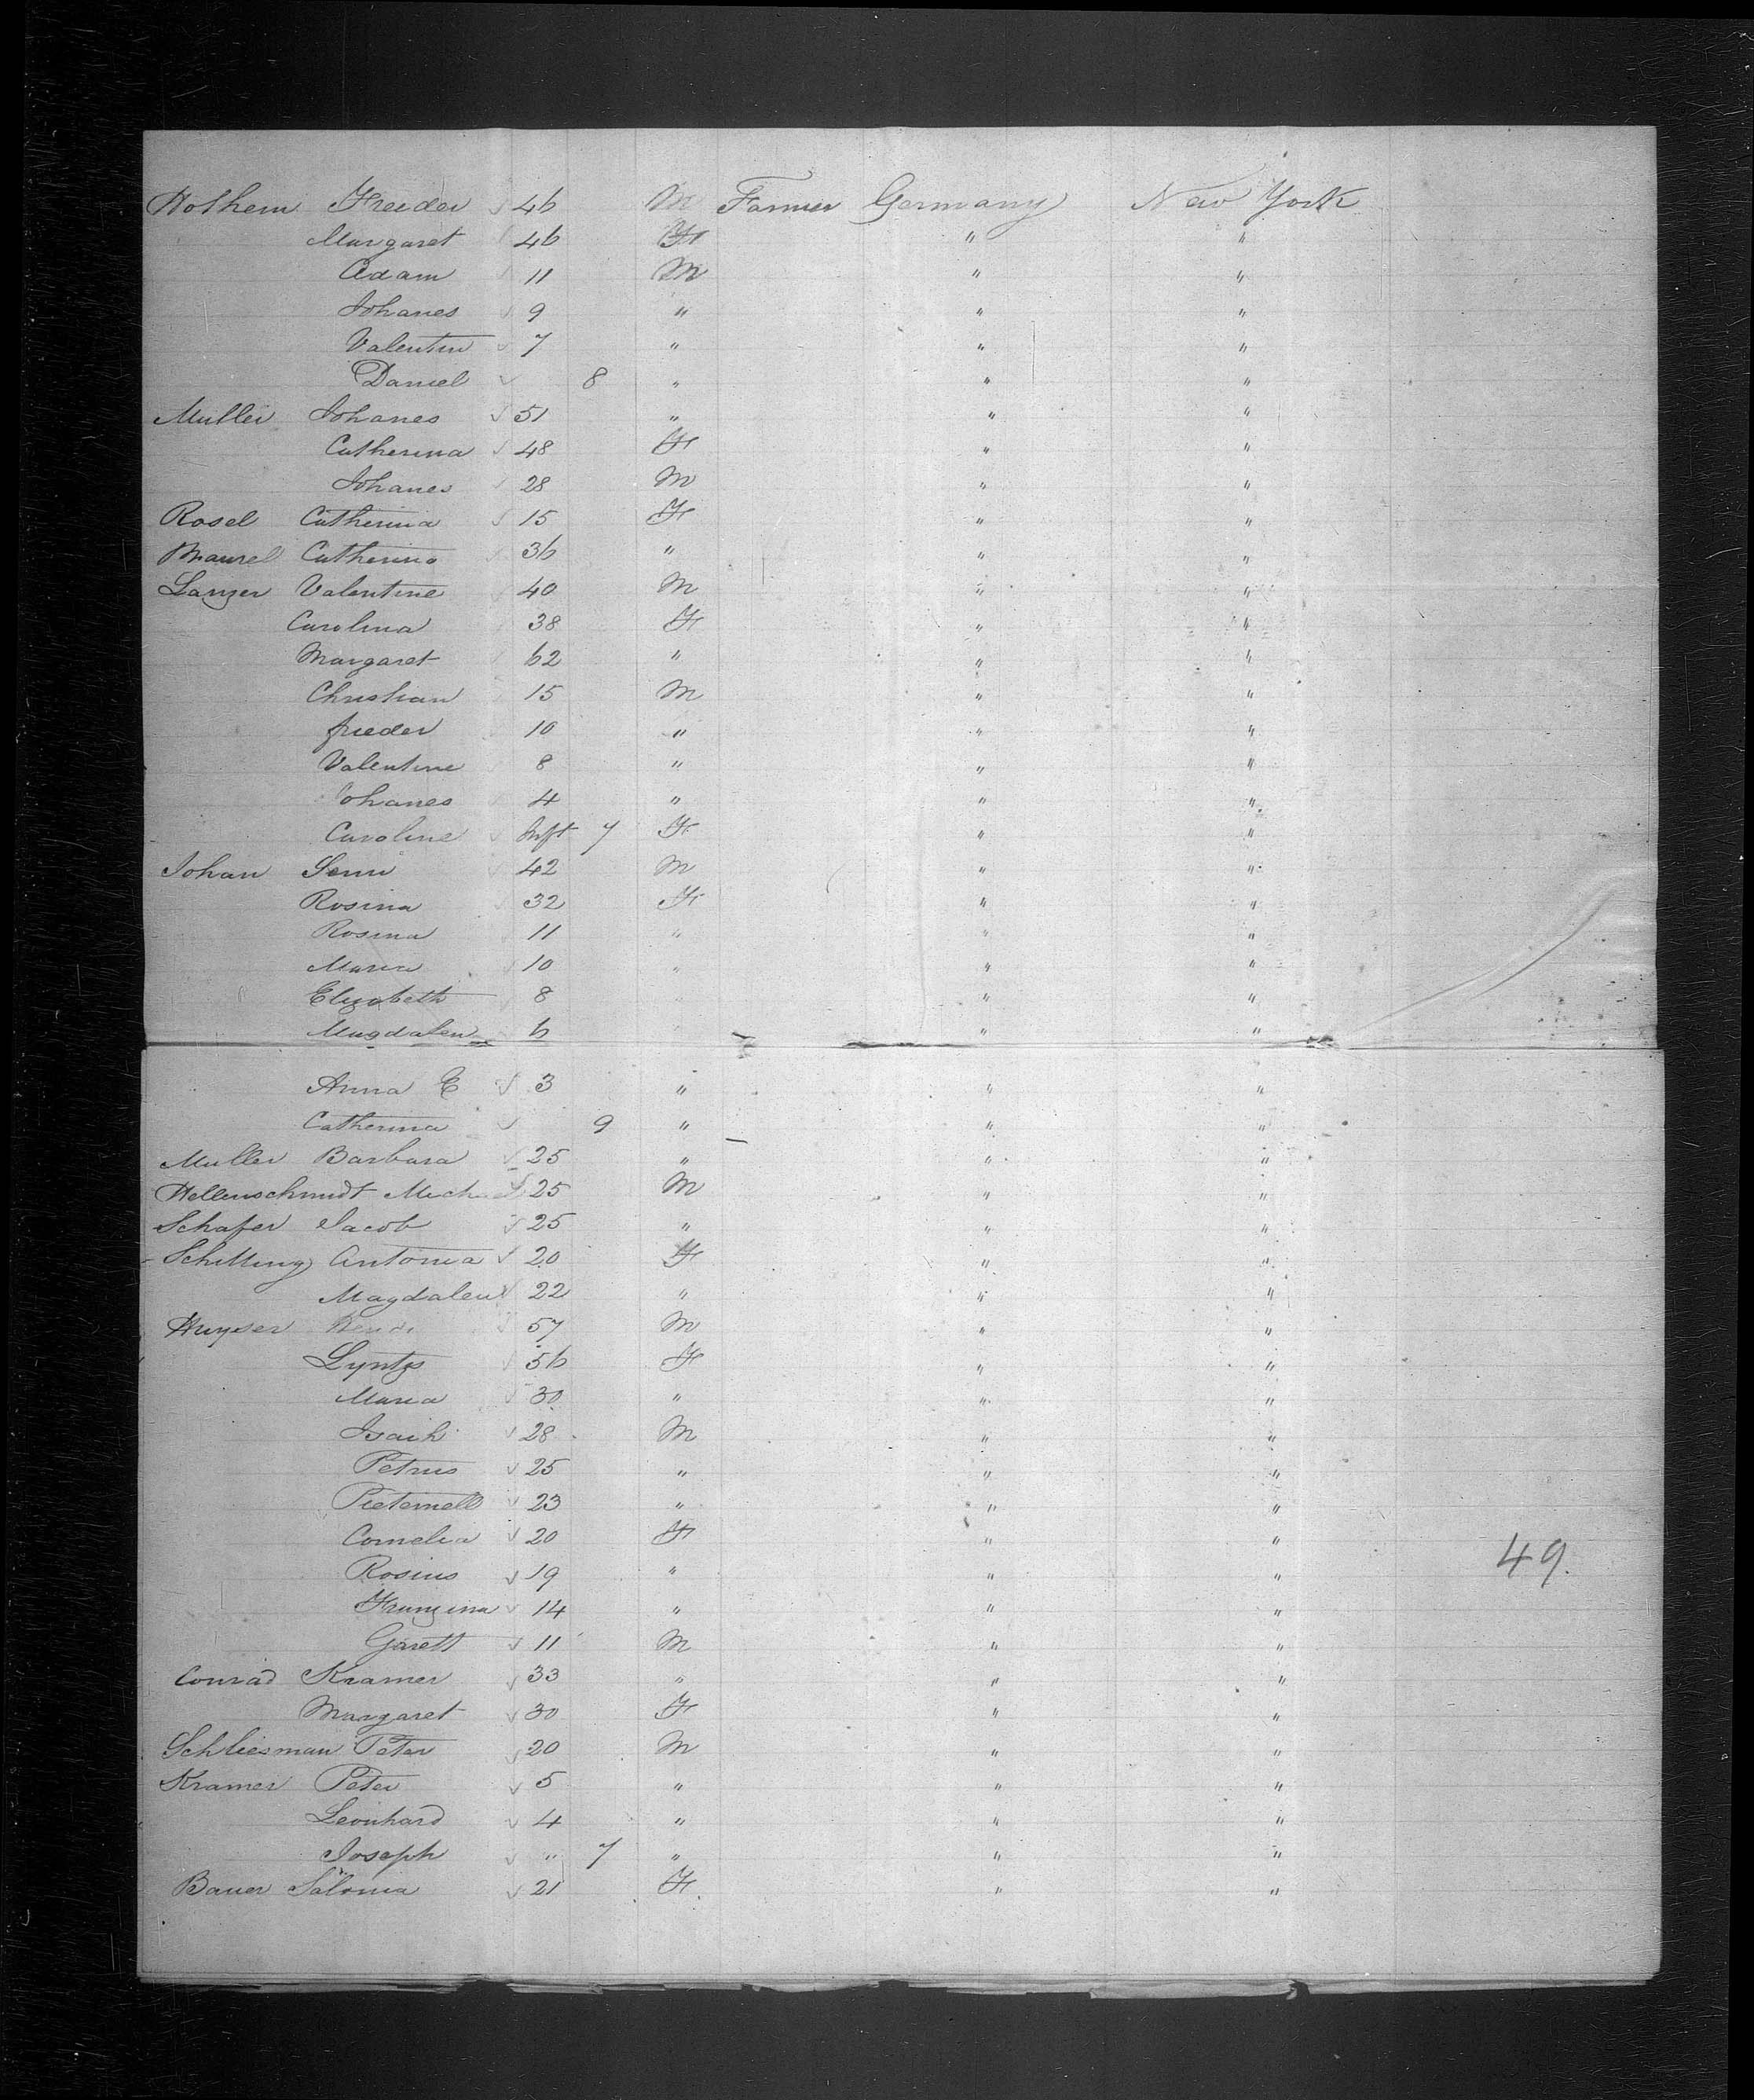 Hothem Frieder 46 M Farmer Germany New York
Margaret 46 F " "
Adam 11 M " "
Johanes 9 " " "
Valentin 7 " " "
Daniel 8 " " "
Muller Johanes 51 " " "
Catherina 48 F " "
Johanes 28 M " "
Rosel Catherina 15 F " "
Maurel Catherina 36 " " "
Langer Valentine 40 M " "
Carolina 38 F " "
Margaret 62 " " "
Christian 15 M " "
frieder 10 " " "
Valentine 8 " " "
Johanes 4 " " "
Caroline Inft 7 F " "
Johan 42 M " "
Rosina 32 F " "
Rosina 11 " " "
Maria 10 " " "
Elizabeth 8 " " "
Magdalen 6 " "
Anna E 3 " " "
Catherina 9 " " "
Muller Barbara 25 " " "
Hellenschmidt Mich 25 M " "
Schafer Jacob 25 " " "
Schilling Antonia 20 F " "
Magdalen 22 " " "
Huyser 57 M " "
Lyntgs 56 F " "
Maria 30 " " "
Isaih 28 M " "
Petrus 25 " " "
Pieternell 23 " " "
Cornelia 20 F " "
Rosins 19 " " "
Franzina 14 " " "
Garett 11 M " "
49.
Conrad Kramer 33 " " "
Margaret 30 F " "
Schliesman Peter 20 M " "
Kramer Peter 5 " " "
Leonhard 4 " " "
Joseph " 7 " " "
Bauer Salomia 21 F " "